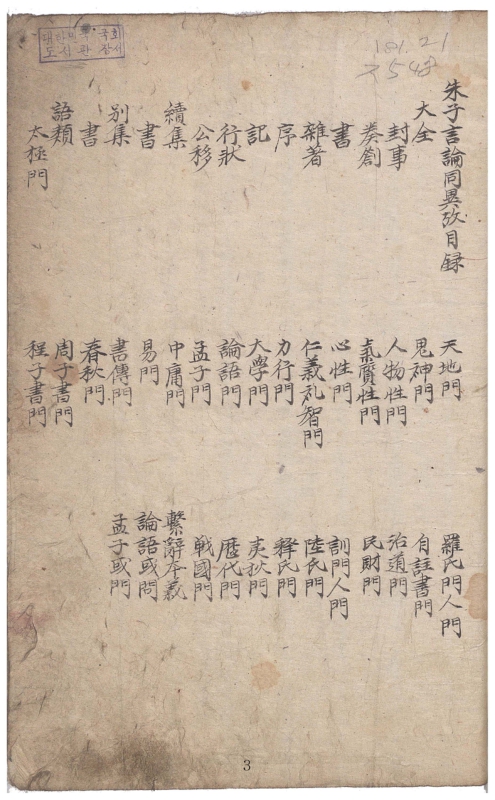 대한민국 국회
도서관 장서
181.21
ㅈ548
朱子言論同異攷目録
大全
封事
奏劄
書
雜著
序
記
行狀
公移
續集
書
別集
書
語類
太極門
天地門
鬼神門
人物性門
氣質性門
心性門
仁義礼智門
力行門
大學門
論語門
孟子門
中庸門
易門
書傳門
春秋門
周子書門
程子書門
羅氏門人門
自註書門
治道門
民財門
訓門人門
陸氏門
釋氏門
夷狄門
歷代門
戰國門
繫辭本義
論語或問
孟子或門
3